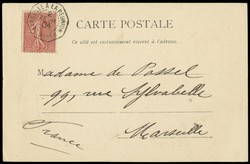 CARTE POSTALE
Ce côté est exclusivement réservé à l'adresse.
Madame de Possel
99, rue Sylvabelle
Marseille
France